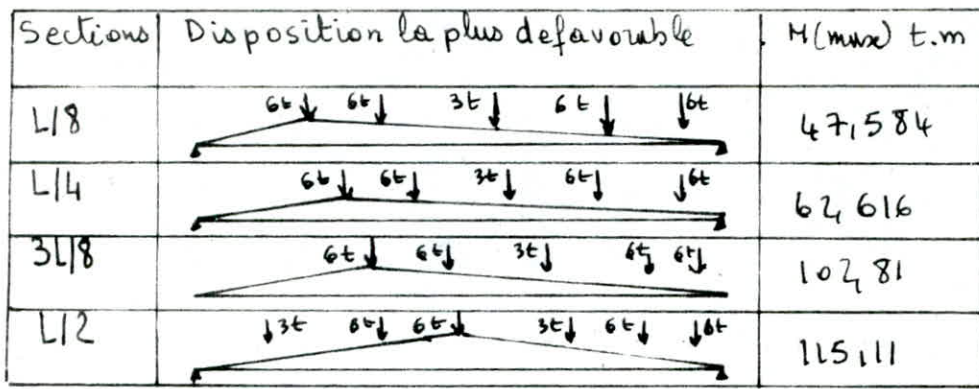 Sections Disposition la plus defavorable M(max) t.m
L/8 6t 6t 3t 6t 6t 47,584
L/4 6t 6t 3t 6t 6t 62,616
3L/8 6t 6t 3t 6t 6t 102,81
L/2 3t 6t 6t 3t 6t 6t 115,11